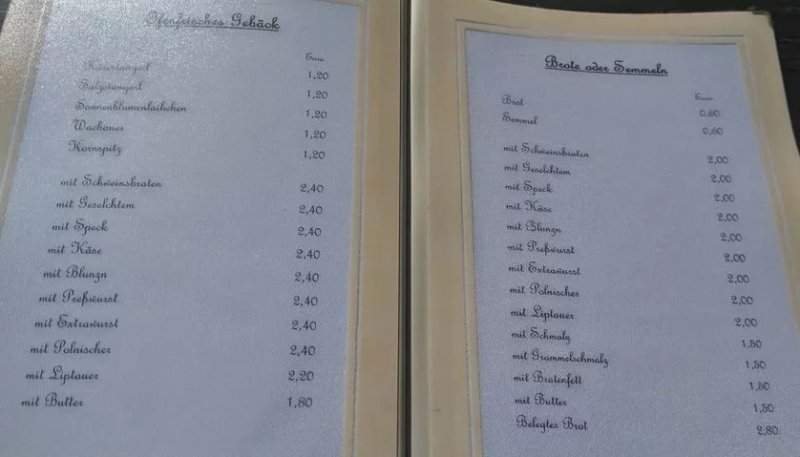 Ofenfrisches Gebäck
Euro
1,20
Salzstangerl 1,20
Sonnenblumenlaibchen 1,20
Wachauer 1,20
Kornspitz 1,20
mit Schweinsbraten 2,40
mit Geselchtem 2,40
mit Speck 2,40
mit Käse 2,40
mit Blunzn 2,40
mit Preßwurst 2,40
mit Extrawurst 2,40
mit Polnischer 2,40
mit Liptauer 2,20
mit Butter 1,80
Brote oder Semmeln
Euro
Brot 0,60
Semmel 0,60
mit Schweinsbraten 2,00
mit Geselchtem 2,00
mit Speck 2,00
mit Käse 2,00
mit Blunzn 2,00
mit Preßwurst 2,00
mit Extrawurst 2,00
mit Polnischer 2,00
mit Liptauer 2,00
mit Schmalz 1,50
mit Grammelschmalz 1,50
mit Bratenfett 1,50
mit Butter 1,50
Belegtes Brot 2,80